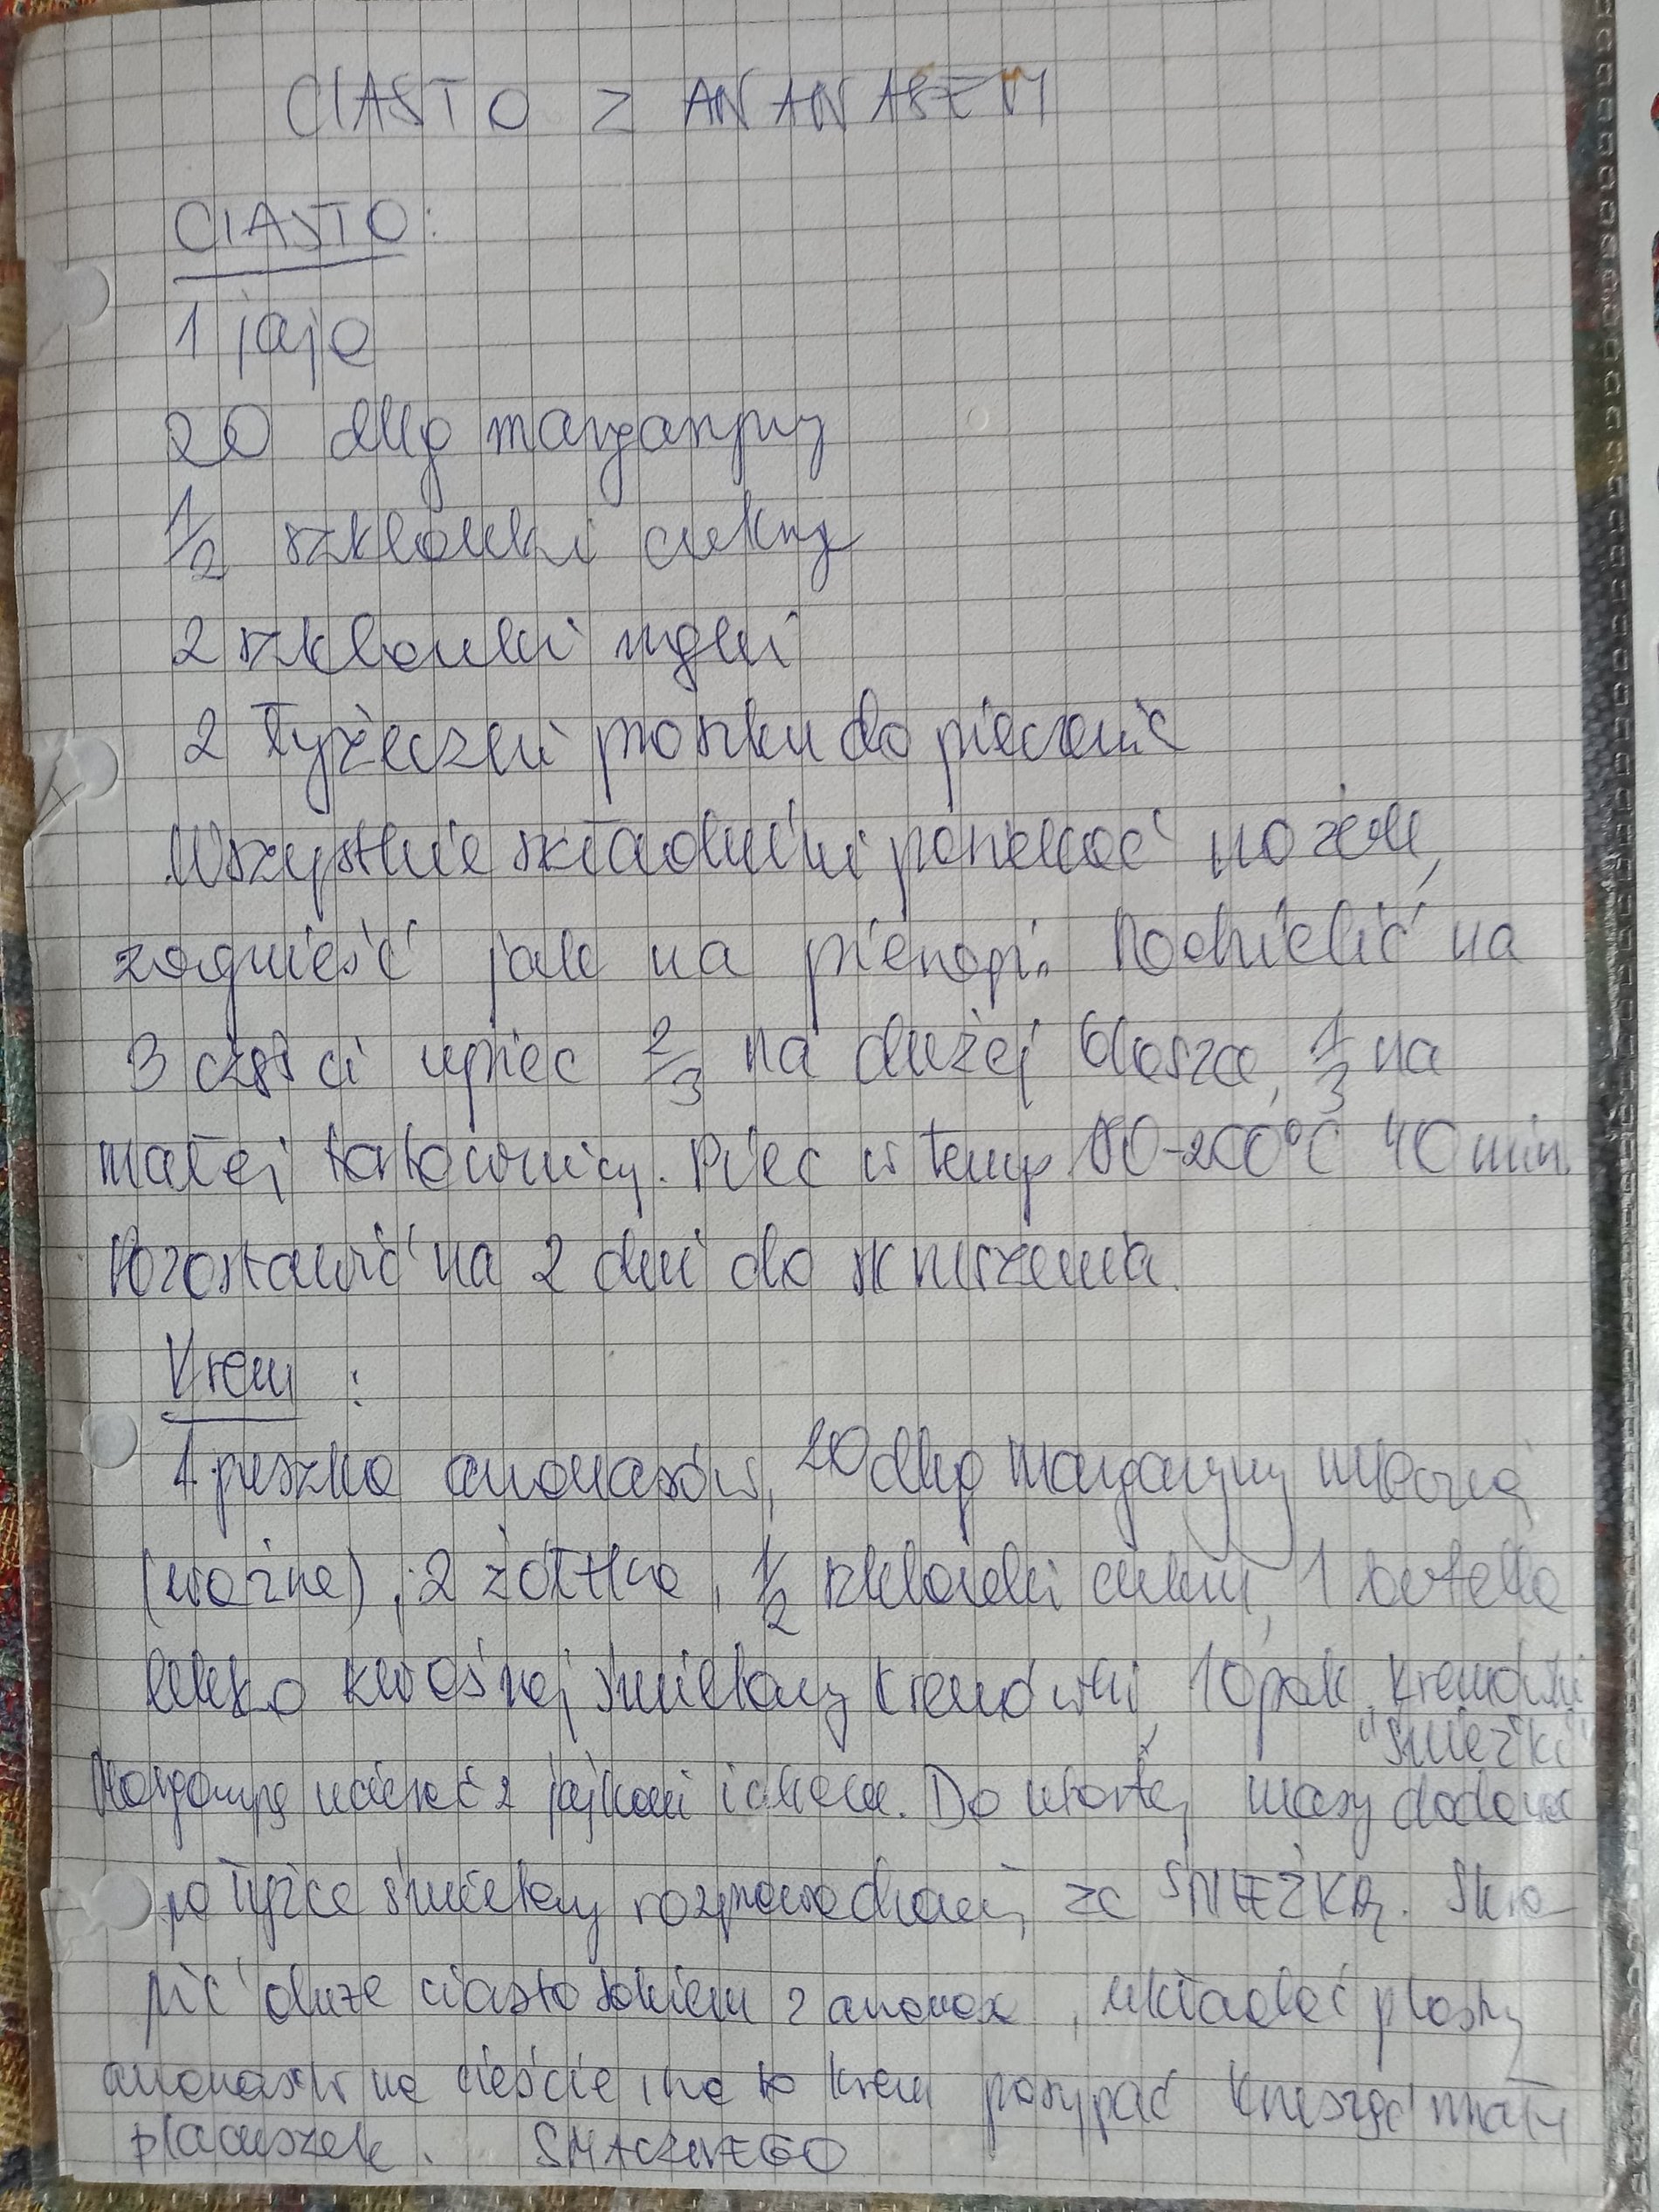 CIASTO Z ANANASEM
CIASTO:
1 jajo
20 dkg margaryny
1/2 szklanki cukru
2 szklanki mąki
2 łyżeczki proszku do pieczenia
Wszystkie składniki posiekać nożem,
zagnieść jak na pierogi. Podzielić na
3 części upiec 2/3 na dużej blasze, 1/3 na
małej tortownicy. Piec w temp. 180-200°C 40 min.
Pozostawić na 2 dni do skruszenia.
Krem:
1 puszka ananasów, 20 dkg margaryny mleczną
(ważne), 2 żółtka, 1/2 szklanki cukru, 1 butelka
lekko kwaśnej śmietany kremówki, 1 opak. kremówki
"śnieżki"
Margarynę ucierać z jajkami i cukrem. Do utartej masy dodawać
po łyżce śmietany rozprowadzanej ze ŚNIEŻKĄ. Skro-
pić duże ciasto sokiem z ananasa, układać plastry
ananasów na cieście i na to krem posypać krusząc mały
placuszek. SMACZNEGO